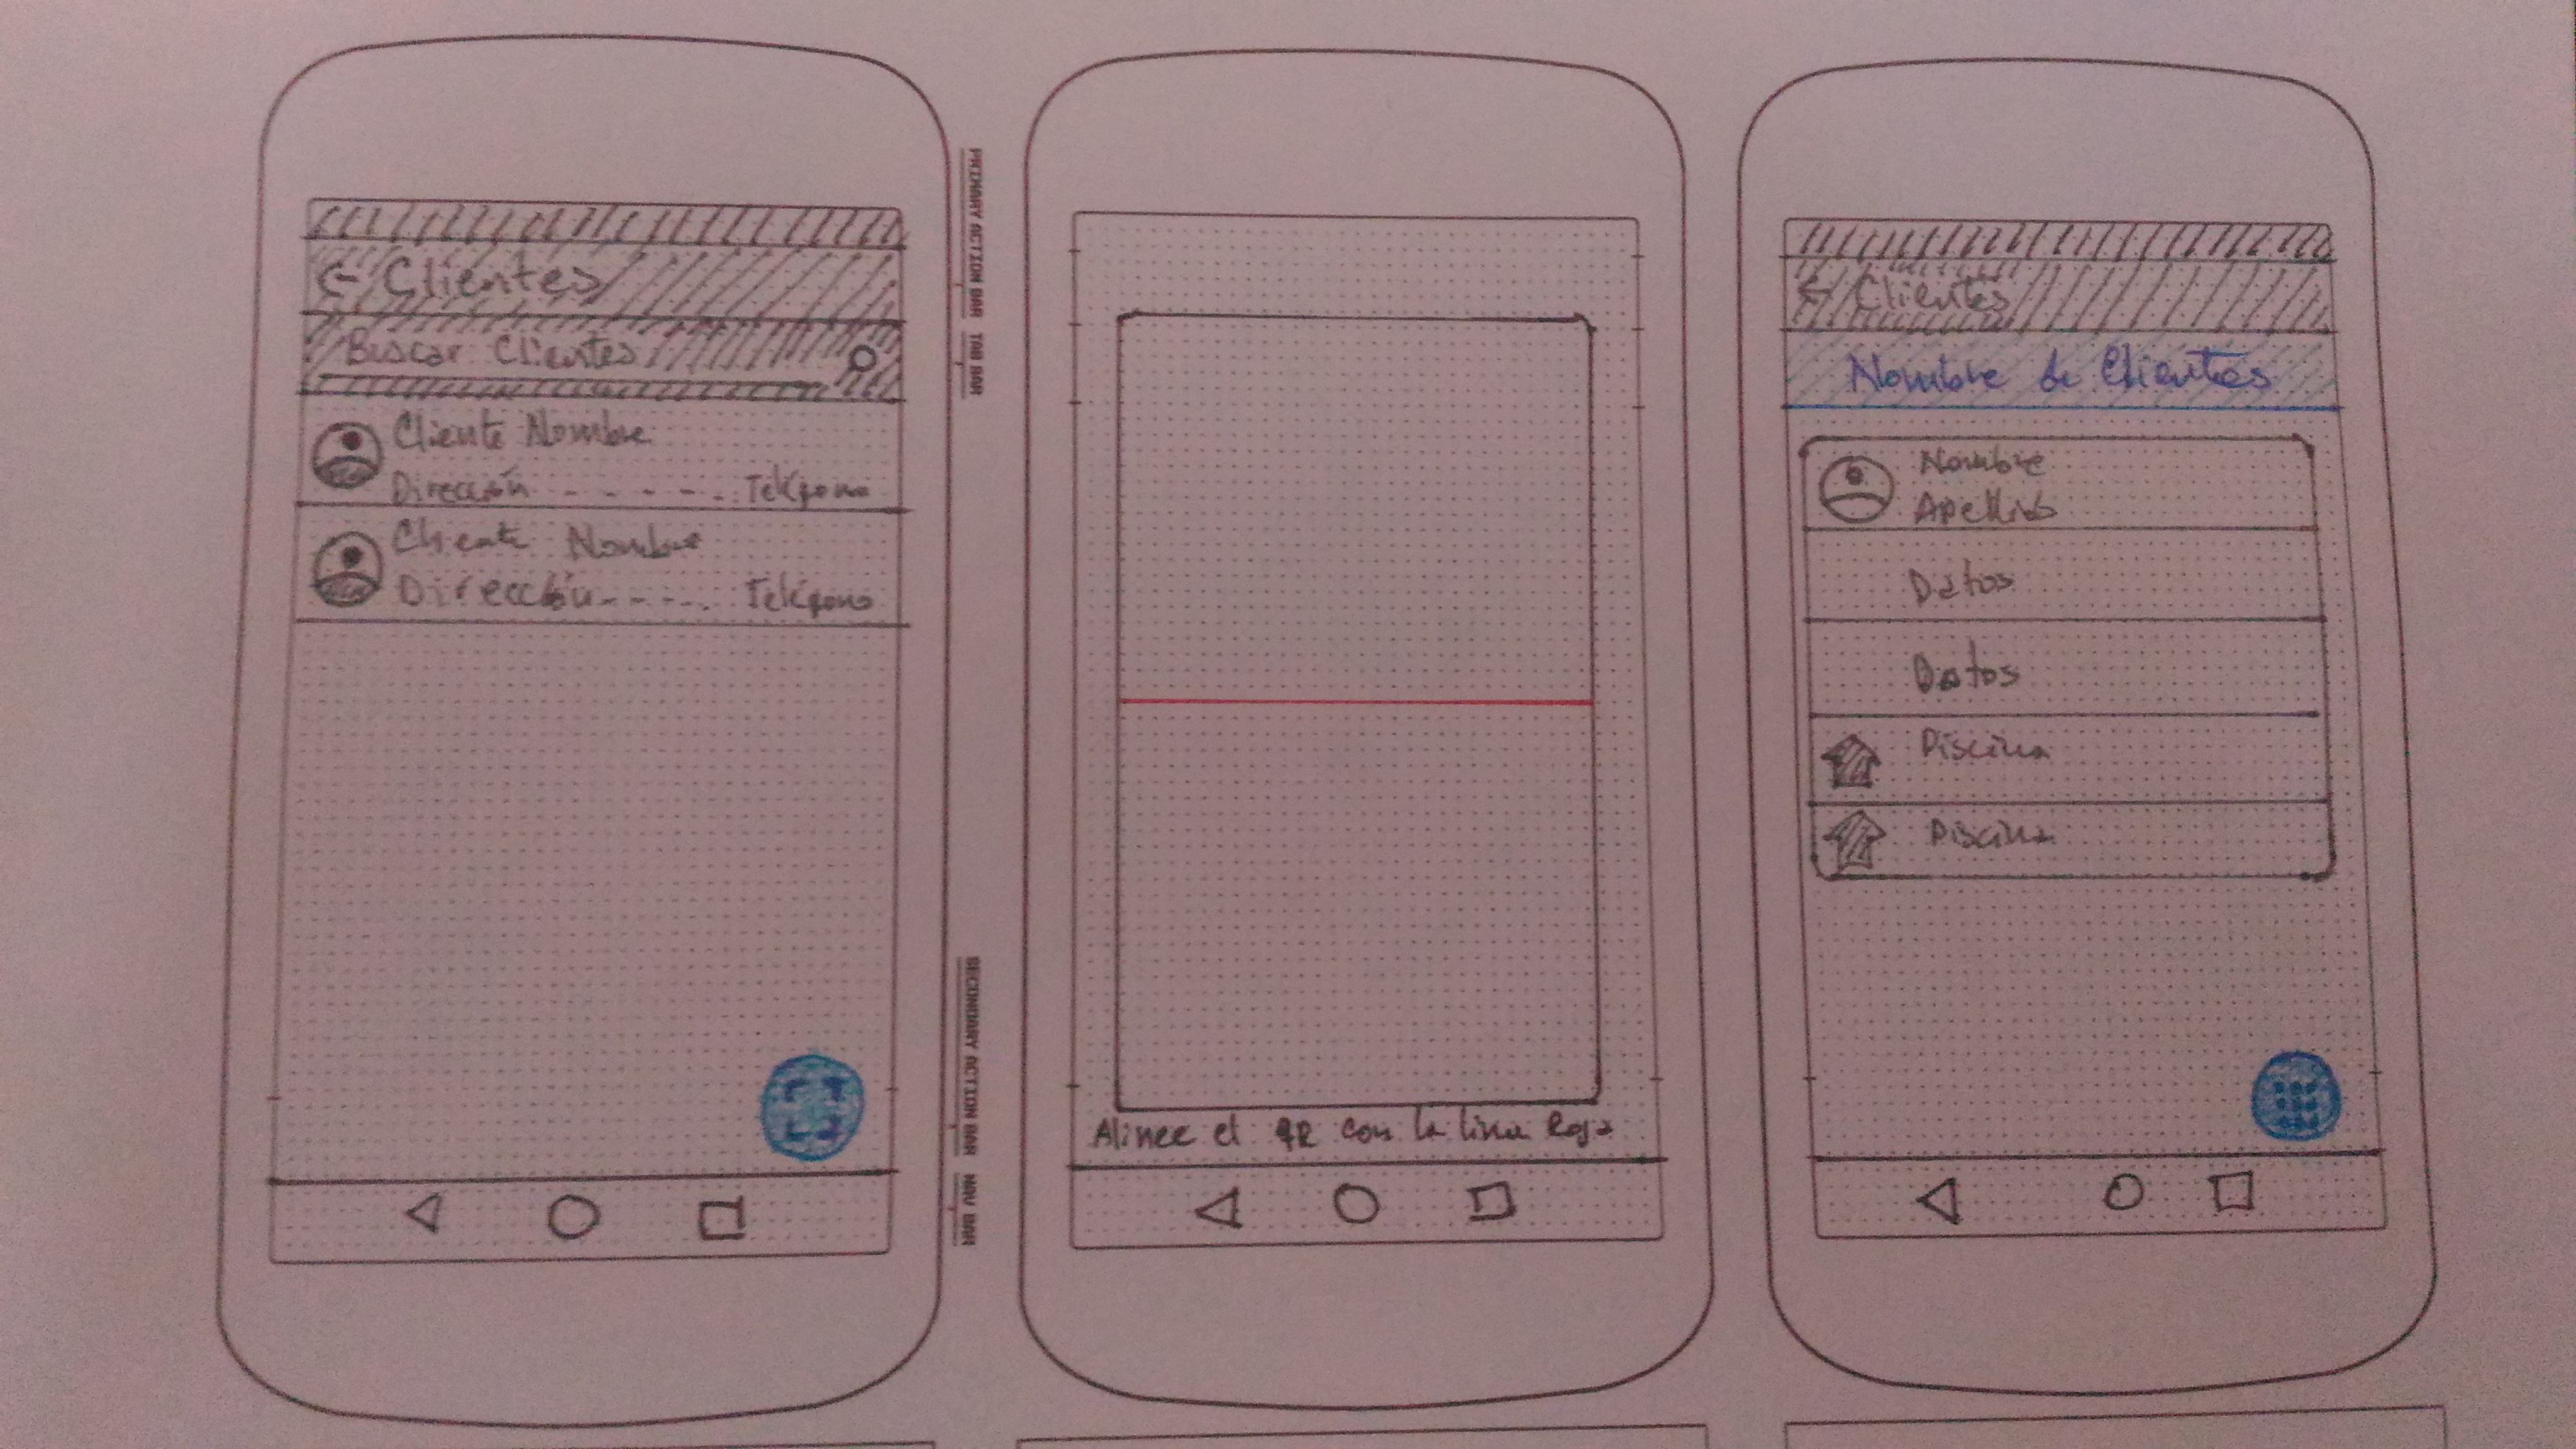 ← Clientes
Buscar Clientes
Cliente Nombre
Dirección - - - - - . Teléfono
Cliente Nombre
Dirección - - - - . Teléfono
PRIMARY ACTION BAR
TAB BAR
SECONDARY ACTION BAR
NAV BAR
Alinee el QR con la linea Roja
← Clientes
Nombre de Clientes
Nombre
Apellido
Datos
Datos
Piscina
Piscina